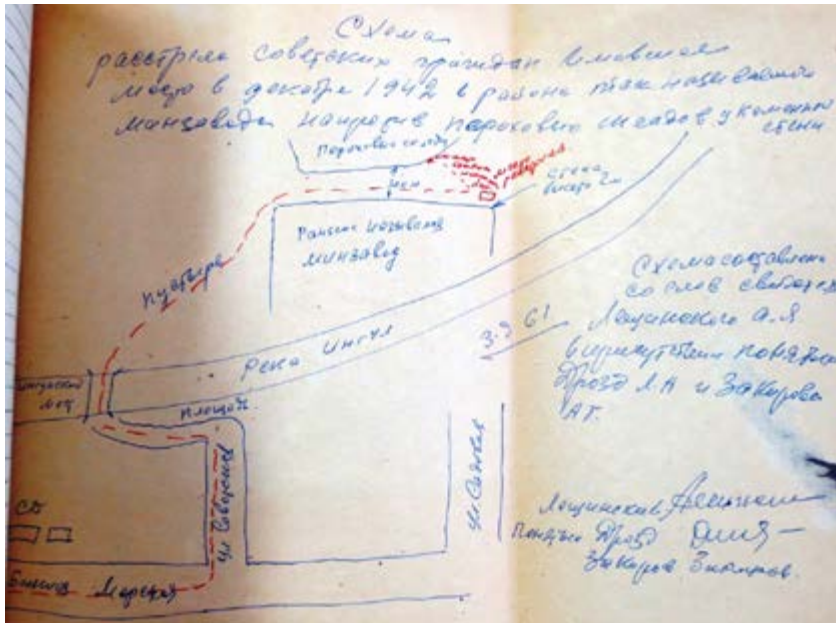 Схема
расстрела советских граждан имевшая
место в декабре 1942 в районе так называемой
минзавода напротив пороховых складов у каменной
стены
Пороховые склады
стена
высота 2 м
Раньше назывался
минзавод
пустырь
Река Ингул
Схема составлена
со слов свидетеля
Лещинского А.Я
в присутствии понятых
Дрозд Л А и Закирова
АГ.
мост
площадь
ул Советская
ул. Садовая
СД
Большая Морская
Лещинский
понятые Дрозд
Закиров